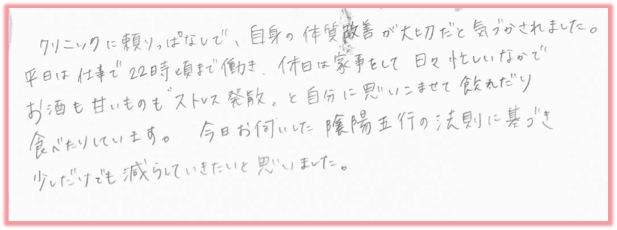 クリニックに頼りっぱなしで、自身の体質改善が大切だと気づかされました。
平日は仕事で22時頃まで働き、休日は家事をして日々忙しいなかで
お酒も甘いものも"ストレス発散"と自分に思いこませて飲んだり
食べたりしています。 今日お伺いした陰陽五行の法則に基づき
少しだけでも減らしていきたいと思いました。